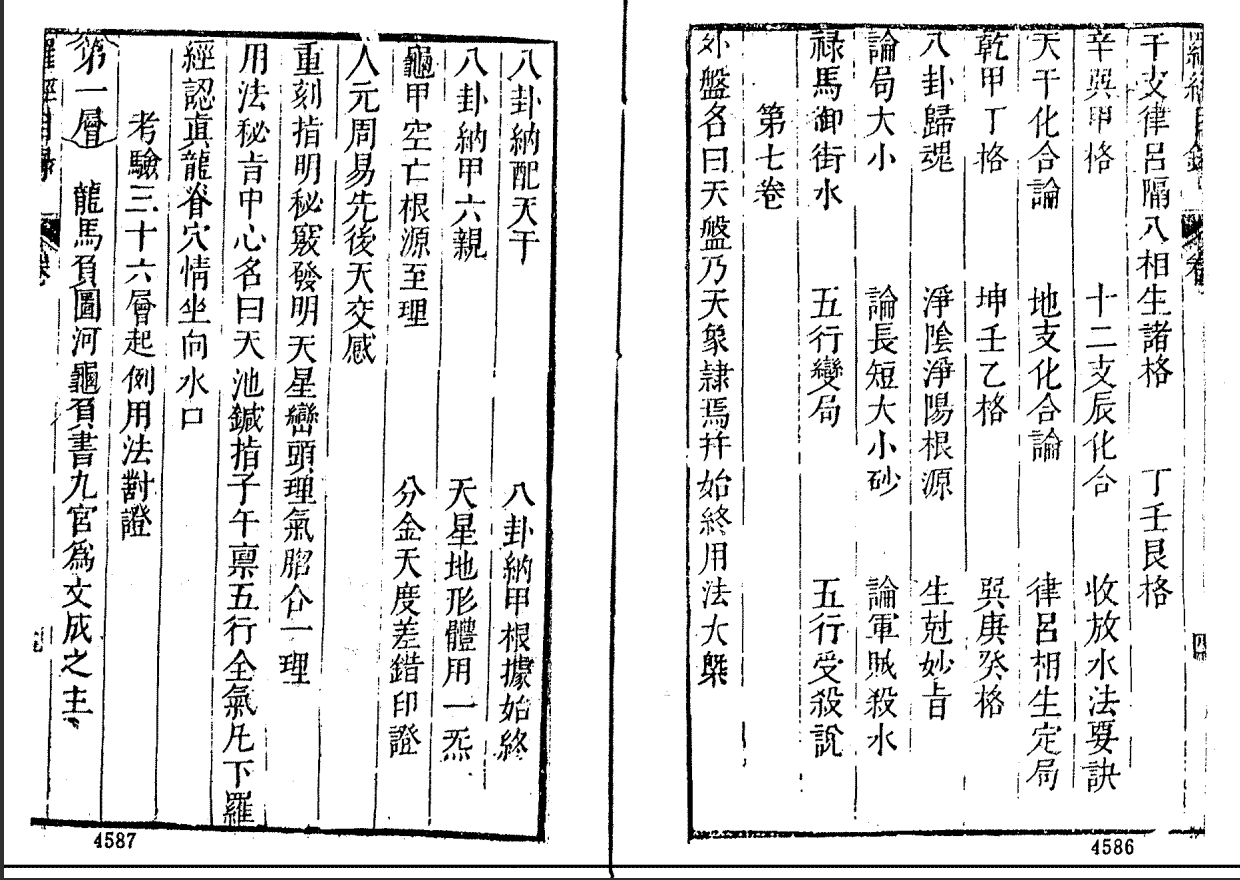 干支律呂隔八相生諸格 丁壬艮格
辛巽甲格 十二支辰化合 收放水法要訣
天干化合論 地支化合論 律呂相生定局
乾甲丁格 坤壬乙格 巽庚癸格
八卦歸魂 淨陰淨陽根源 生尅妙旨
論局大小 論長短大小砂 論軍賊殺水
祿馬御街水 五行變局 五行受殺說
第七卷
外盤名曰天盤乃天象隷焉并始終用法大槩
4586
八卦納配天干 八卦納甲根據始終
八卦納甲六親 天星地形體用一炁
龜甲空亡根源至理 分金天度差錯印證
人元周易先後天交感
重刻指明秘竅發明天星巒頭理氣脗合一理
用法秘旨中心名曰天池鍼指子午禀五行全氣凡下羅
經認眞龍脊穴情坐向水口
考驗三十六層起例用法對證
第一層 龍馬負圖河龜負書九宮爲文成之主
4587